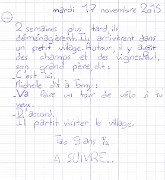 mardi 17 novembre 2015
2 semaines plus tard, ils
déménagèrent. Ils arrivèrent dans
un petit village. Autour, il y avait
des champs et des vignes
son grand père, dit :
_ C'est ici.
Michelle dit à Tony :
_ Va faire un tour de vélo si tu
veux.
_ D'accord.
Il partit visiter le village.
9 ans ½
A SUIVRE...